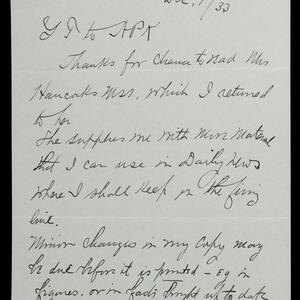 Dec. 1/33
Y T to APK
Thanks for chance to read Mrs
Hancocks MSS, which I returned
to her
She supplies me with more material
that I can use in Daily News
where I shall keep in the firing
line.
Minor changes in my Copy may
be due before it is printed - eg in
figures, or in facts brought up to date